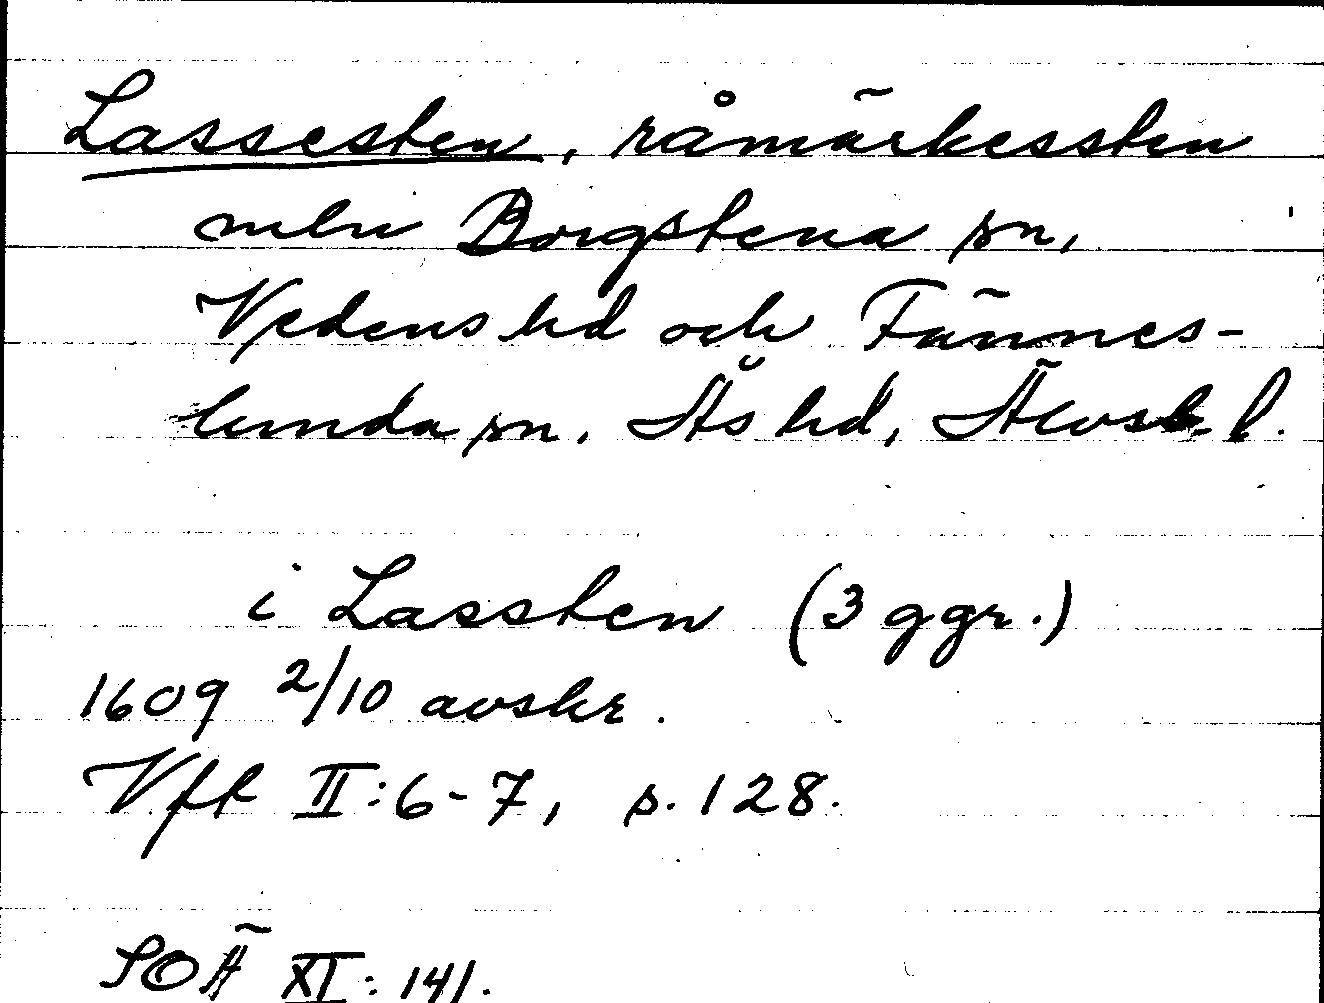 Lassesten, råmärkessten
mln Borgstena sn,
Vedens hd och Fännes-
lunda sn. Ås hd, Älvsb. l.
i Lassten (3 ggr.)
1609 2/10 avskr.
Vft II:6-7, s. 128.
SOÄ XI: 141.